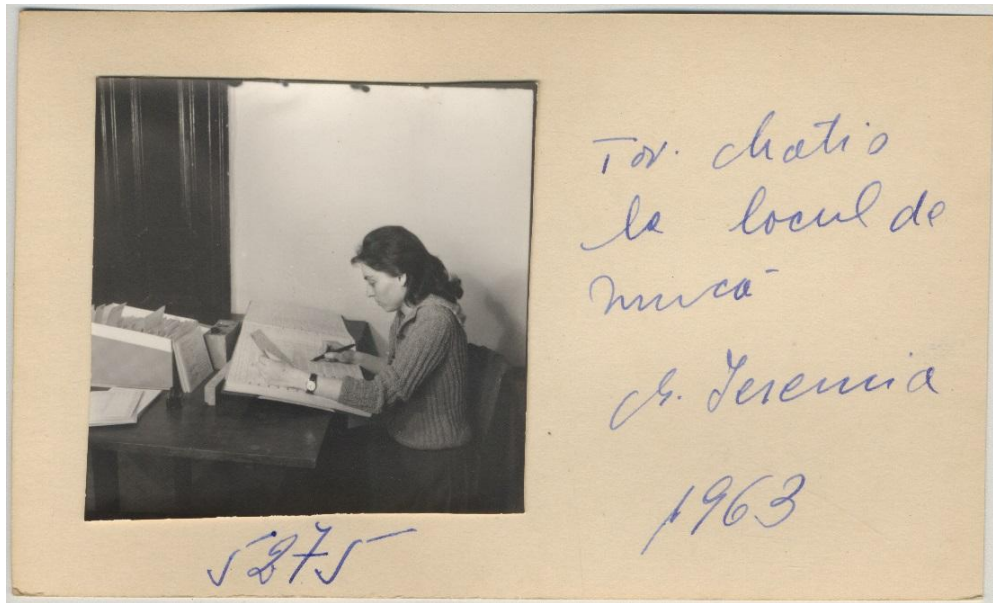 Tov. Matis
la locul de
muncă
Ieremia
1963
5275